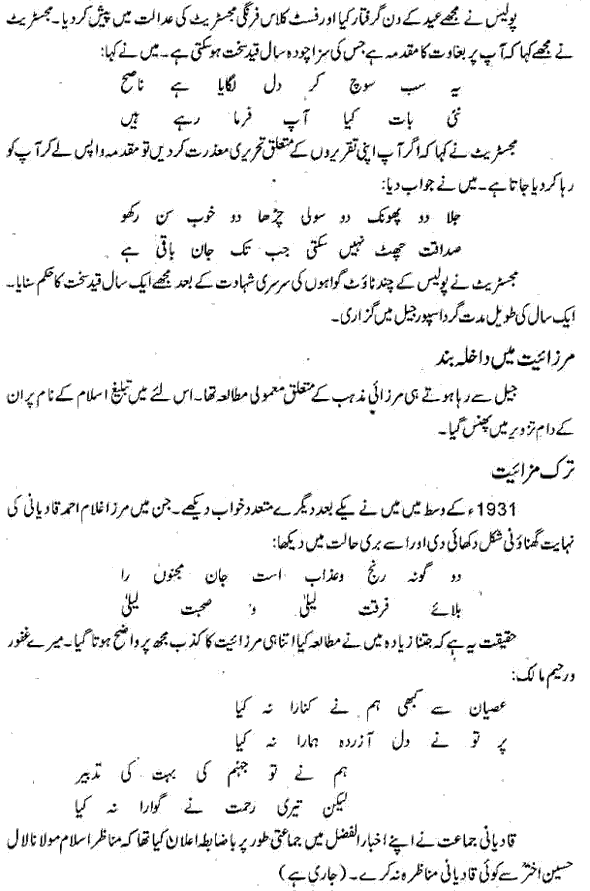 پولیس نے مجھے عید کے دن گرفتار کیا اور فسٹ کلاس فرنگی مجسٹریٹ کی عدالت میں پیش کر دیا۔ مجسٹریٹ
نے مجھے کہا کہ آپ پر بغاوت کا مقدمہ ہے جس کی سزا چودہ سال قید سخت ہو سکتی ہے۔ میں نے کہا:
یہ سب سوچ کر دل لگایا ہے ناصح
نئی بات کیا آپ فرما رہے ہیں
مجسٹریٹ نے کہا کہ اگر آپ اپنی تقریروں کے متعلق تحریری معذرت کر دیں تو مقدمہ واپس لے کر آپ کو
رہا کر دیا جاتا ہے۔ میں نے جواب دیا:
جلا دو پھونک دو سولی چڑھا دو خوب سن رکھو
صداقت چھٹ نہیں سکتی جب تک جان باقی ہے
مجسٹریٹ نے پولیس کے چند ٹاؤٹ گواہوں کی سرسری شہادت کے بعد مجھے ایک سال قید سخت کا حکم سنایا۔
ایک سال کی طویل مدت گرداسپور جیل میں گزاری۔
مرزائیت میں داخلہ بند
جیل سے رہا ہوتے ہی مرزائی مذہب کے متعلق معمولی مطالعہ تھا۔ اس لئے میں تبلیغ اسلام کے نام پر ان
کے دام تزویر میں پھنس گیا۔
ترک مزائیت
1931ء کے وسط میں میں نے یکے بعد دیگرے متعدد خواب دیکھے۔ جن میں مرزا غلام احمد قادیانی کی
نہایت گھناؤنی شکل دکھائی دی اور اسے بری حالت میں دیکھا:
دو گونہ رنج وعذاب است جان مجنوں را
بلائے فرقت لیلیٰ و صحبت لیلیٰ
حقیقت یہ ہے کہ جتنا زیادہ میں نے مطالعہ کیا اتنا ہی مرزائیت کا کذب مجھ پر واضح ہوتا گیا۔ میرے غفور
ورحیم مالک:
عصیان سے کبھی ہم نے کنارا نہ کیا
پر تو نے دل آزردہ ہمارا نہ کیا
ہم نے تو جہنم کی بہت کی تدبیر
لیکن تیری رحمت نے گوارا نہ کیا
قادیانی جماعت نے اپنے اخبار الفضل میں جماعتی طور پر باضابطہ اعلان کیا تھا کہ مناظر اسلام مولانا لال
حسین اخترؒ سے کوئی قادیانی مناظرہ نہ کرے۔ (جاری ہے)